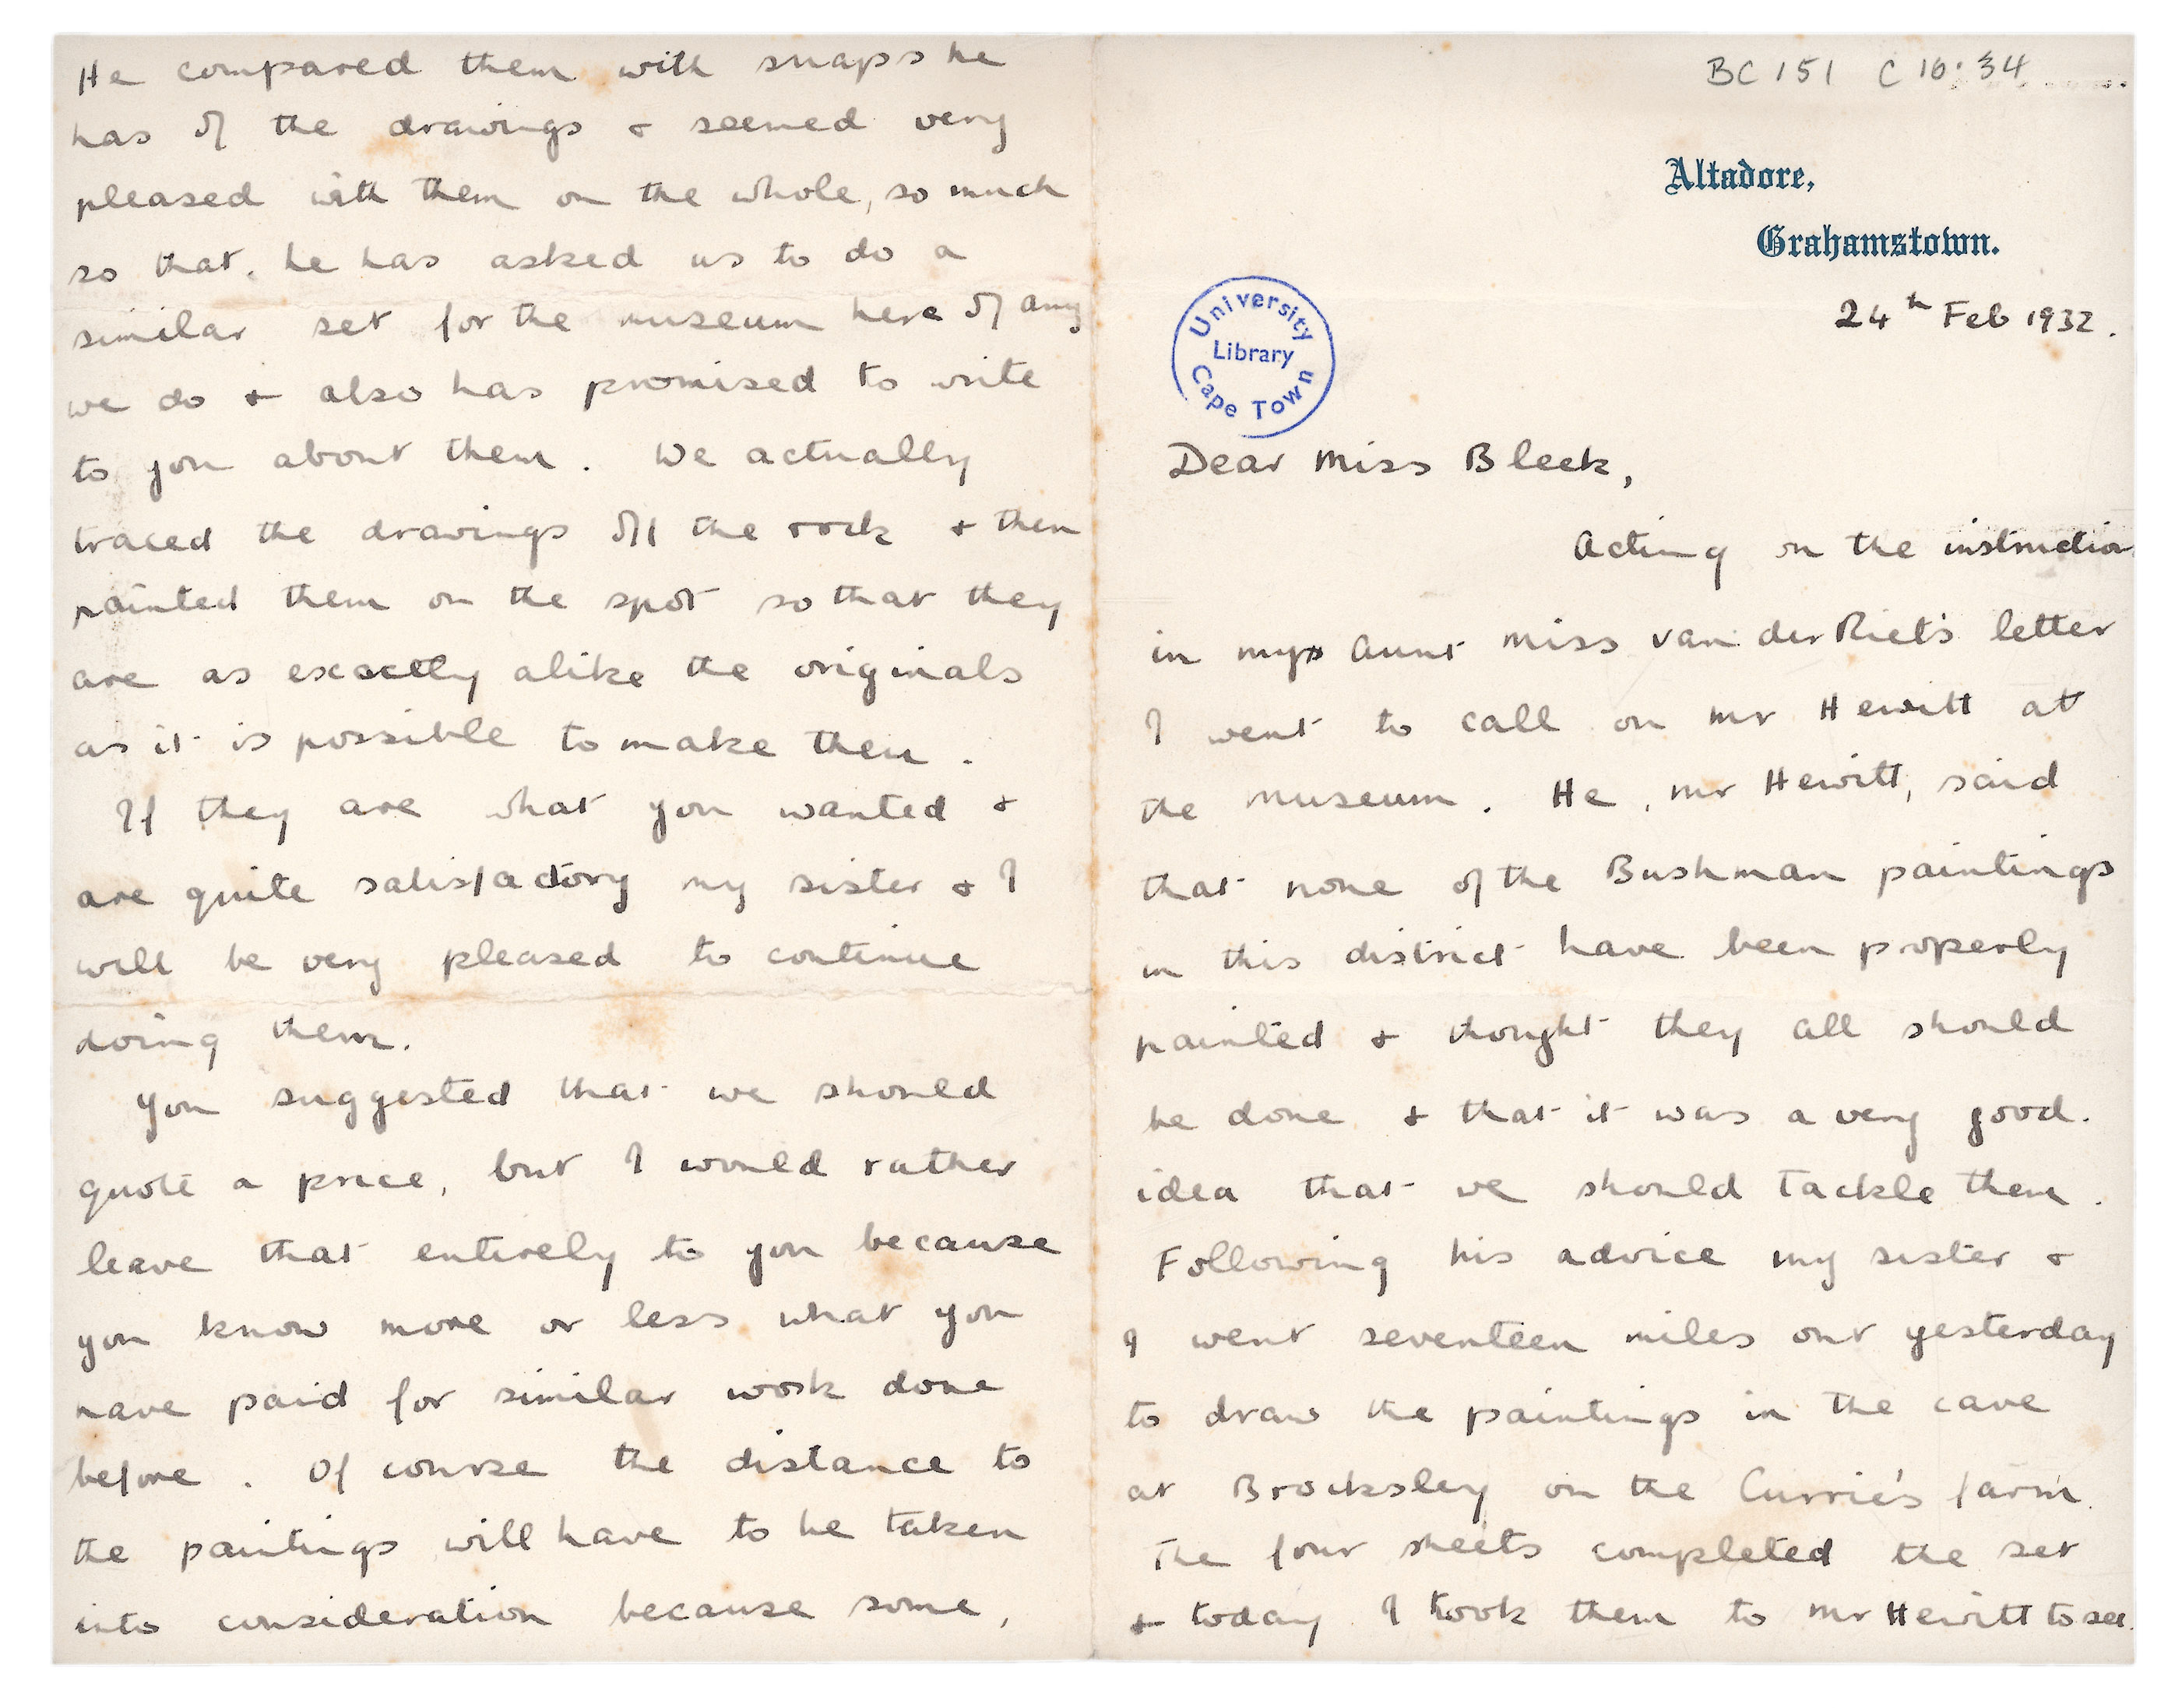 BC 151 C 16:34
Altadore,
Grahamstown.
24th Feb 1932.
University
Library
Cape Town
Dear Miss Bleek,
Acting on the instruction
in my Aunt Miss van der Riet's letter
I went to call on Mr Hewitt at
the museum. He, Mr Hewitt, said
that none of the Bushman paintings
in this district have been properly
painted & thought they all should
be done & that it was a very good.
idea that we should tackle them.
Following his advice my sister &
I went seventeen miles out yesterday
to draw the paintings in the cave
at Brocksley on the Currie's farm.
The four sheets completed the set
& today I took them to Mr Hewitt to see.
He compared them with snaps he
has of the drawings & seemed very
pleased with them on the whole, so much
so that, he has asked us to do a
similar set for the museum here of any
we do & also has promised to write
to you about them. We actually
traced the drawings off the rock & then
painted them on the spot so that they
are as exactly alike the originals
as it is possible to make them.
If they are what you wanted &
are quite satisfactory my sister & I
will be very pleased to continue
doing them.
You suggested that we should
quote a price, but I would rather
leave that entirely to you because
you know more or less what you
have paid for similar work done
before. Of course the distance to
the paintings will have to be taken
into consideration because some,